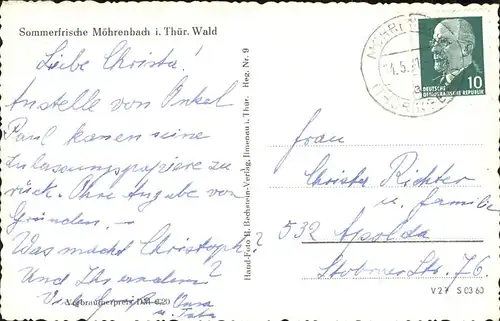 Sommerfrische Möhrenbach i. Thür. Wald
Liebe Christa!
Anstelle von Onkel
Paul kamen seine
Zulassungspapiere zu
rück. Ohne Angabe von
Gründen. —
Was macht Christoph?
Und Ihr anderen?
Oma
u.
Verbraucherpreis DM 0,20
Hand-Foto H. Bechstein-Verlag, Ilmenau i. Thür. Reg. Nr. 9
10
DEUTSCHE
DEMOKRATISCHE REPUBLIK
Frau
Christa Richter
u. Familie
532 Apolda
Stobraer Str. 76.
V 27 S 03 60